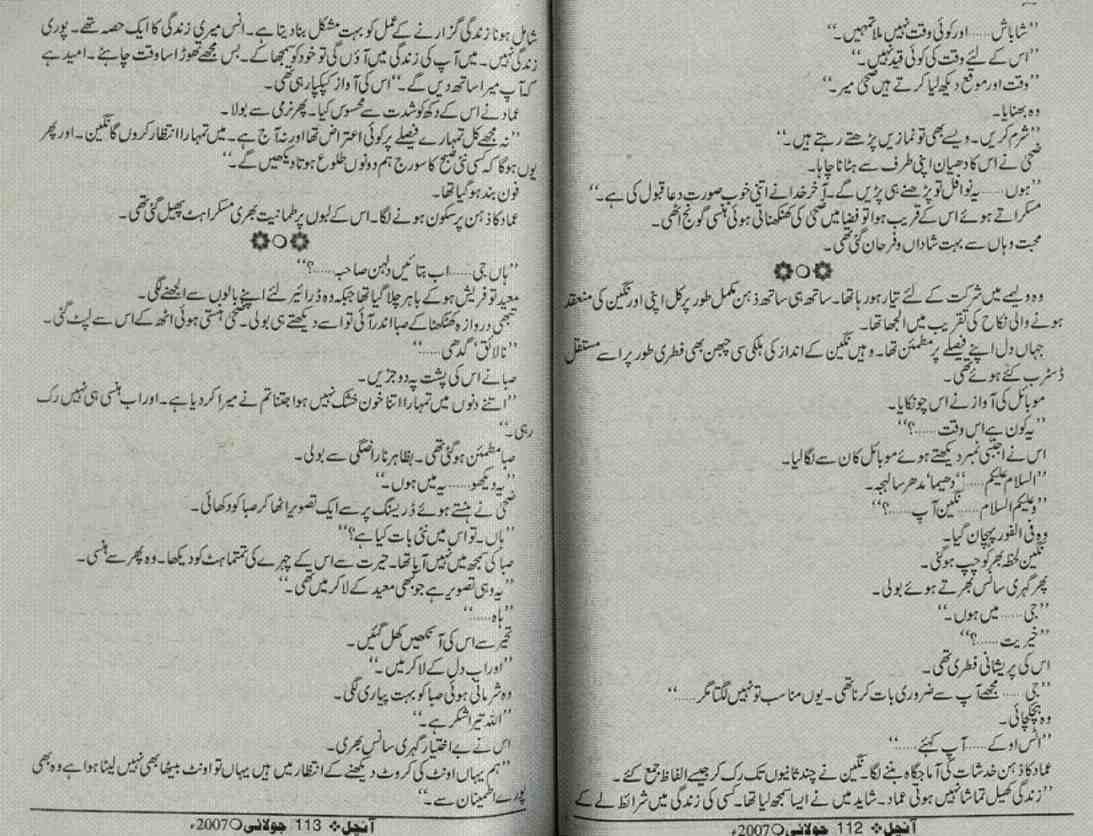 ”شاباش...... اور کوئی وقت نہیں ملا تمہیں۔“
”اس کے لئے وقت کی کوئی قید نہیں۔“
”وقت اور موقع دیکھ لیا کرتے ہیں ضحیٰ میر۔“
وہ بھنایا۔
”شرم کریں۔ ویسے بھی تو نمازیں پڑھتے رہتے ہیں۔“
ضحیٰ نے اس کا دھیان اپنی طرف سے ہٹانا چاہا۔
”ہوں...... یہ نوافل تو پڑھنے ہی پڑیں گے۔ آخر خدا نے اتنی خوب صورت دعا قبول کی ہے۔“
مسکراتے ہوئے اس کے قریب ہوا تو فضا میں ضحیٰ کی کھنکھناتی ہوئی ہنسی گونج اٹھی۔
محبت وہاں سے بہت شاداں و فرحاں گئی تھی۔
وہ ولیمے میں شرکت کے لئے تیار ہو رہا تھا۔ ساتھ ہی ساتھ ذہن مکمل طور پر کل اپنی اور نگین کی منعقد
ہونے والی نکاح کی تقریب میں الجھا تھا۔
جہاں دل اپنے فیصلے پر مطمئن تھا۔ وہیں نگین کے انداز کی ہلکی سی چبھن بھی فطری طور پر اسے مستقل
ڈسٹرب کئے ہوئے تھی۔
موبائل کی آواز نے اس چونکایا۔
”یہ کون ہے اس وقت......؟“
اس نے اجنبی نمبر دیکھتے ہوئے موبائل کان سے لگا لیا۔
”السلام علیکم......“ دھیما، مدھر سا لہجہ۔
”وعلیکم السلام...... نگین آپ......؟“
وہ فی الفور پہچان گیا۔
نگین لحظہ بھر کو چپ ہو گئی۔
پھر گہری سانس بھرتے ہوئے بولی۔
”جی...... میں ہوں۔“
”خیریت......؟“
اس کی پریشانی فطری تھی۔
”جی...... مجھے آپ سے ضروری بات کرنا تھی۔ یوں مناسب تو نہیں لگتا مگر......“
وہ ہچکچائی۔
”اٹس او کے...... آپ کہئے......“
عماد کا ذہن خدشات کی آماجگاہ بننے لگا۔ نگین نے چند ثانیوں تک رک کر جیسے الفاظ جمع کئے۔
”زندگی کھیل تماشا نہیں ہوتی عماد۔ شاید میں نے ایسا سمجھ لیا تھا۔ کسی کی زندگی میں شرائط لے کے
آنچل ❖ 112 جولائی ○ 2007ء
شامل ہونا زندگی گزارنے کے عمل کو بہت مشکل بنا دیتا ہے۔ انس میری زندگی کا ایک حصہ تھے۔ پوری
زندگی نہیں۔ میں آپ کی زندگی میں آؤں گی تو خود کو سمجھا کے۔ بس مجھے تھوڑا سا وقت چاہئے۔ امید ہے
کہ آپ میرا ساتھ دیں گے۔“ اس کی آواز کپکپا رہی تھی۔
عماد نے اس کے دکھ کو شدت سے محسوس کیا۔ پھر نرمی سے بولا۔
”نہ مجھے کل تمہارے فیصلے پر کوئی اعتراض تھا اور نہ آج ہے۔ میں تمہارا انتظار کروں گا نگین۔ اور پھر
یوں ہو گا کہ کسی نئی صبح کا سورج ہم دونوں طلوع ہوتا دیکھیں گے۔“
فون بند ہو گیا تھا۔
عماد کا ذہن پر سکون ہونے لگا۔ اس کے لبوں پر طمانیت بھری مسکراہٹ پھیل گئی تھی۔
”ہاں جی...... اب بتائیں دلہن صاحبہ......؟“
معید تو فریش ہو کے باہر چلا گیا تھا جبکہ وہ ڈرائیر لئے اپنے بالوں سے الجھنے لگی۔
تبھی دروازہ کھٹکھٹا کے صبا اندر آئی تو اسے دیکھتے ہی بولی۔ ضحیٰ ہنستی ہوئی اٹھ کے اس سے لپٹ گئی۔
”نالائق، گدھی......“
صبا نے اس کی پشت پہ دو جڑیں۔
”اتنے دنوں میں تمہارا اتنا خون خشک نہیں ہوا جتنا تم نے میرا کر دیا ہے۔ اور اب ہنسی ہی نہیں رک
رہی۔“
صبا مطمئن ہو گئی تھی۔ بظاہر ناراضگی سے بولی۔
”یہ دیکھو...... یہ میں ہوں۔“
ضحیٰ نے ہنستے ہوئے ڈریسنگ پر سے ایک تصویر اٹھا کر صبا کو دکھائی۔
”ہاں۔ تو اس میں نئی بات کیا ہے؟“
صبا کی سمجھ میں نہیں آیا تھا۔ حیرت سے اس کے چہرے کی تمتماہٹ کو دیکھا۔ وہ پھر سے ہنسی۔
”یہ وہی تصویر ہے جو بھی معید کے لاکر میں تھی۔“
”ہاہ......“
تحیر سے اس کی آنکھیں کھل گئیں۔
”اور اب دل کے لاکر میں۔“
وہ شرماتی ہوئی صبا کو بہت پیاری لگی۔
”اللہ تیرا شکر ہے۔“
اس نے بے اختیار گہری سانس بھری۔
”ہم یہاں اونٹ کی کروٹ دیکھنے کے انتظار میں ہیں یہاں تو اونٹ بیٹھا بھی نہیں لیٹا ہوا ہے وہ بھی
پورے اطمینان سے۔“
آنچل ❖ 113 جولائی ○ 2007ء